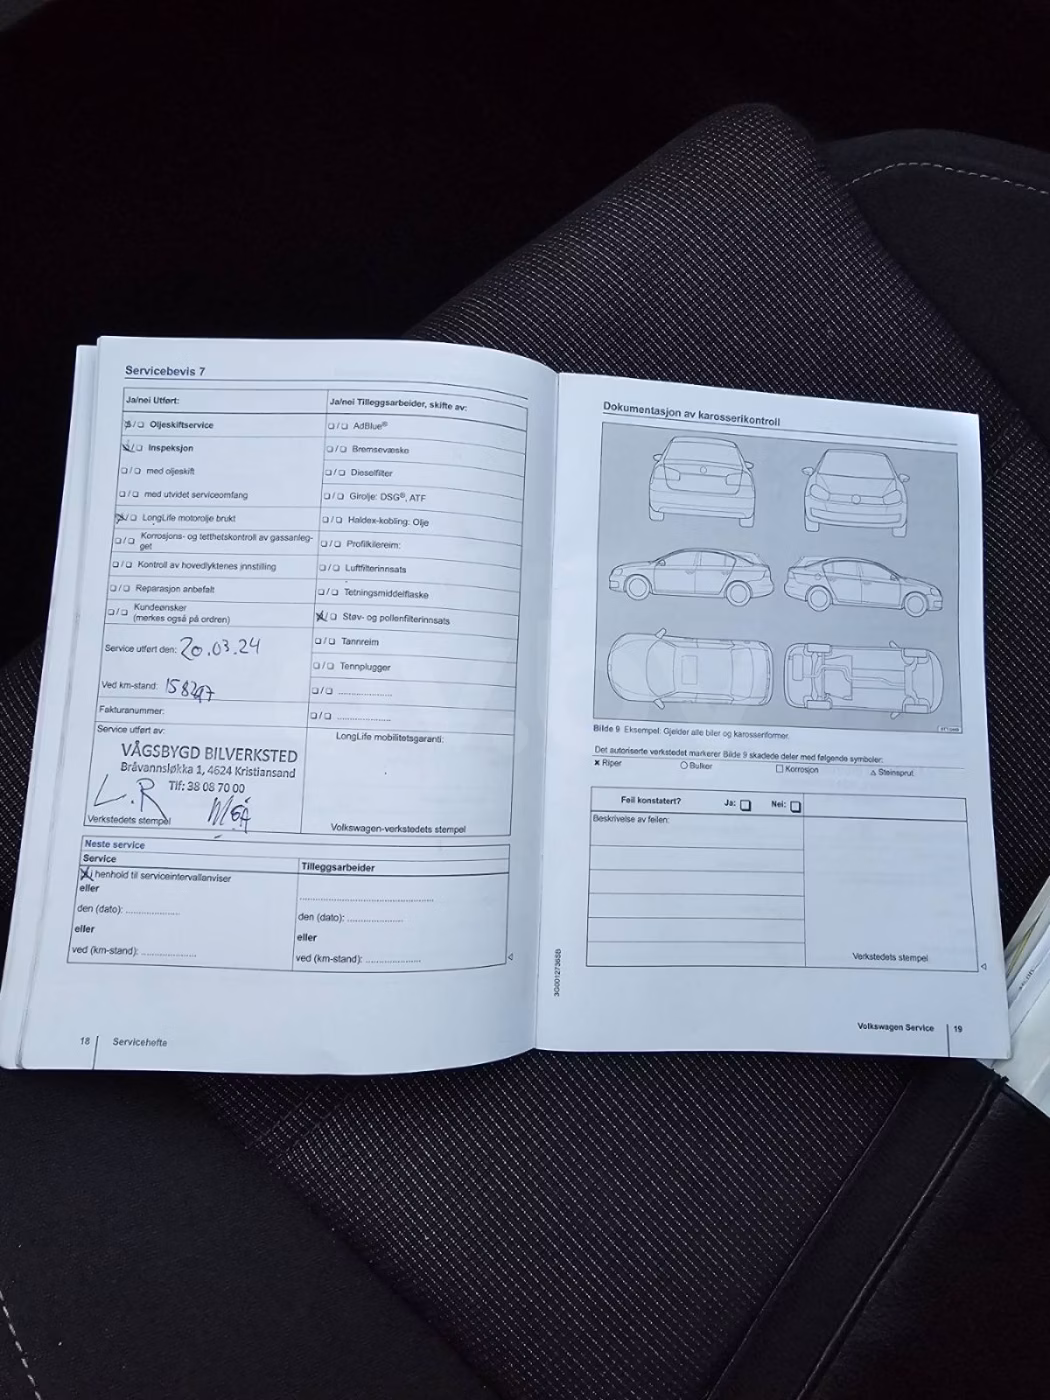 Servicebevis 7
Ja/nei Utført:
Oljeskiftservice
Inspeksjon
med oljeskift
med utvidet serviceomfang
LongLife motorolje brukt
Korrosjons- og tetthetskontroll av gassanleg-
get
Kontroll av hovedlyktenes innstilling
Reparasjon anbefalt
Kundeønsker
(merkes også på ordren)
Service utført den: 20.03.24
Ved km-stand: 158297
Fakturanummer:
Service utført av:
VÅGSBYGD BILVERKSTED
Bråvannsløkka 1, 4624 Kristiansand
Tlf: 38 08 70 00
L.R
Verkstedets stempel
Ja/nei Tilleggsarbeider, skifte av:
AdBlue®
Bremsevæske
Dieselfilter
Girolje: DSG®, ATF
Haldex-kobling: Olje
Profilkilereim:
Luftfilterinnsats
Tetningsmiddelflaske
Støv- og pollenfilterinnsats
Tannreim
Tennplugger
LongLife mobilitetsgaranti:
Volkswagen-verkstedets stempel
Neste service
Service
I henhold til serviceintervallanviser
eller
den (dato): ...................
eller
ved (km-stand): ...................
Tilleggsarbeider
den (dato): ...................
eller
ved (km-stand): ...................
18 Servicehefte
Dokumentasjon av karosserikontroll
Bilde 9 Eksempel: Gjelder alle biler og karosseriformer.
Det autoriserte verkstedet markerer Bilde 9 skadede deler med følgende symboler:
Riper
Bulker
Korrosjon
Steinsprut
Feil konstatert? Ja: Nei:
Beskrivelse av feilen:
Verkstedets stempel
3G0012736SB
Volkswagen Service 19